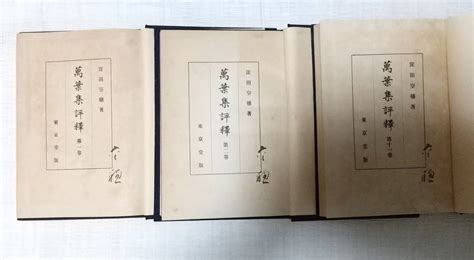 窪田空穗著
萬葉集評釋 第一卷
東京堂版
窪田空穗著
萬葉集評釋 第二卷
東京堂版
窪田空穗著
萬葉集評釋 第十一卷
東京堂版